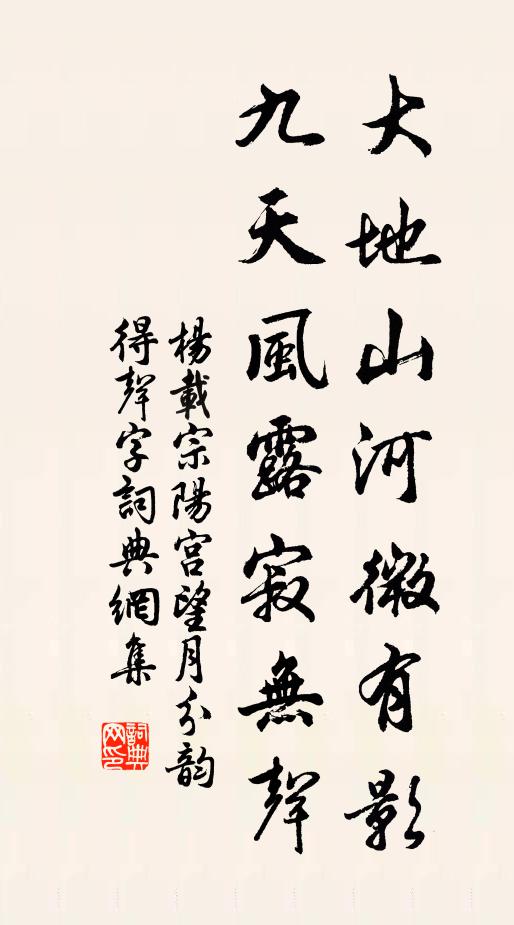 大地山河微有影
九天風露寂無聲
楊載宗陽宮望月分韵
得聲字詞典網集
詞典網印